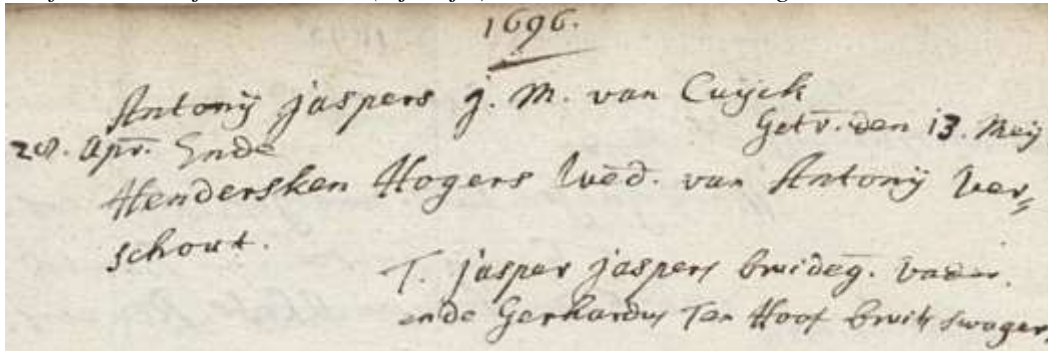 1696.
Antonÿ jaspers j. M. van Cuÿck
Getr. den 13. Meÿ
28. Apr. Ende
Hendersken Hogers Wed. van Antonÿ Ver=
schout.
T. jasper jaspers bruideg. vader.
ende Gerhardus Ten Hoof bruits swager.